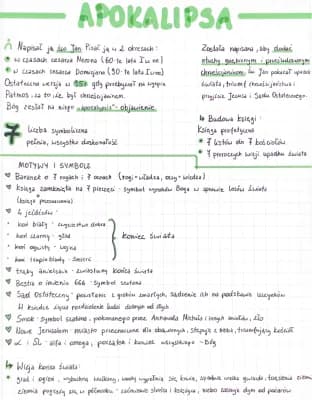 APOKALIPSA
Napisał ją św Jan Pisał ją w 2 okresach:
w czasach cesarza Nerona (60-te lata I w ne)
w czasach cesarza Domicjana (90-te lata I w ne)
Ostateczna wersja w 95r gdy przebywał na wyspie
Patmos, za to, że był chrześcijaninem.
Bóg zesłał na niego "apokalypsis"- objawienie.
Została napisana, aby dodać
otuchy, gnębionym i prześladowanym
chrześcijanom. Św Jan pokazał
triumf chrześcijaństwa i
przyjście Jezusa i Sądu Ostatecznego.
7
liczba symboliczna
pełnia, wszystko doskonałość
Budowa księgi:
Księga profetyczna
7 listów do 7 kościołów
7 proroczych wizji upadku świata
MOTYWY I SYMBOLE
Baranek o 7 rogach i 7 oczach (rogi-władza, oczy-wiedza)
Księga zamknięta na 7 pieczęci - symbol wyroków Boga w sprawie losów świata
(księga przeznaczenia)
4 jeźdźców:
koń biały - zwycięstwo dobra
koń czarny - głód
koń ognisty - wojna
koń trupio blady - śmierć
koniec świata
trąby anielskie - zwiastowały końca świata
Bestia o imieniu 666 - symbol szatana
Sąd Ostateczny - powstanie z grobów zmarłych, sądzenie ich na podstawie uczynków
W księdze życia
Smok - symbol szatana, pokonanego przez Archanioła Michała i innych aniołów, zło
Nowe Jeruzalem - miasto przeznaczone dla zbawionych, stąpi z nieba, triumfujący kościół
α i Ω - alfa i omega, początek i koniec wszystkiego - Bóg
Wizja końca świata:
grad i ogień, wybuchną wulkany, wody wypełnia się krwią, spadnie wielka gwiazda, trzęsienie ziemi